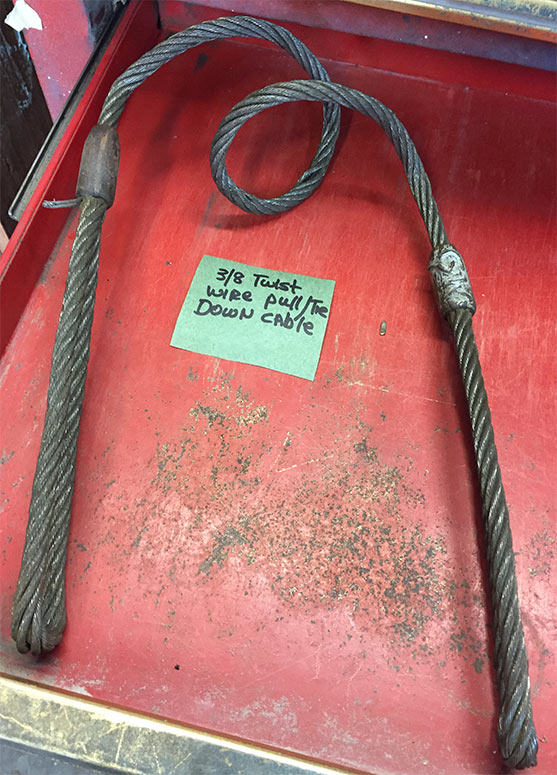 3/8 Twist
wire pull/Tie
Down cable